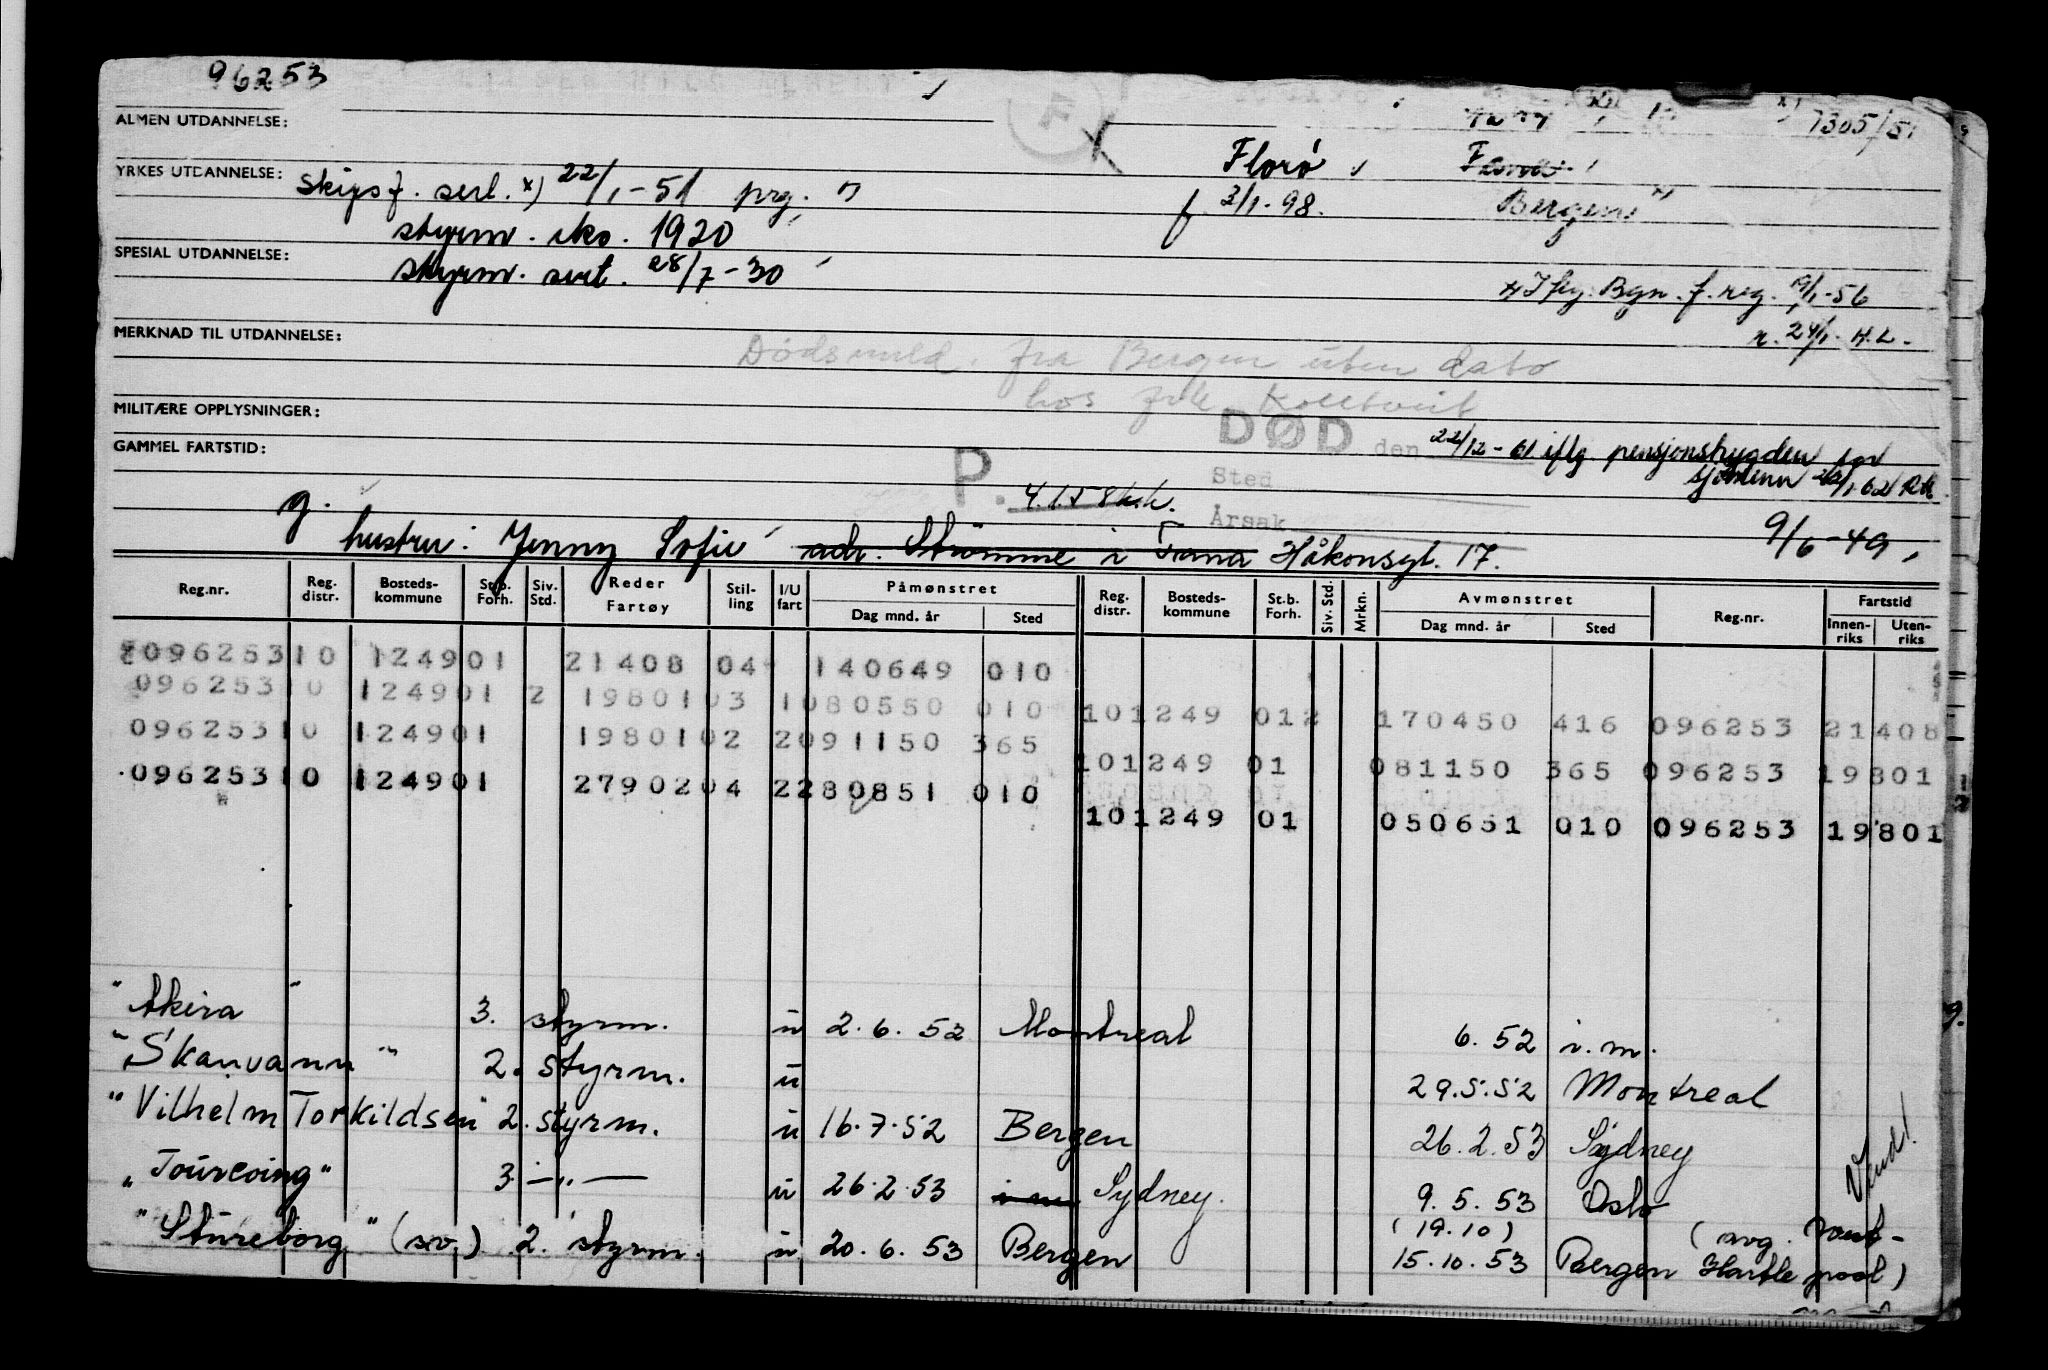 96253
F
7305/51
ALMEN UTDANNELSE:
Florø
YRKES UTDANNELSE: Skipsf. serl. x) 22/1-51 prg. "
f. 3/1-98. Bergen x)
styrm. sko. 1920
SPESIAL UTDANNELSE: styrm. sert. 28/7-30
x) Iflg. Bgn. f. reg. 9/1-56
n. 24/1- H.L.
MERKNAD TIL UTDANNELSE:
Dødsmeld. fra Bergen uten dato
hos frk
MILITÆRE OPPLYSNINGER:
DØD den 22/12-61 iflg. pensjonstrygden for
GAMMEL FARTSTID:
sjømenn
P. Sted
4.1.58
Årsak
g.
9/6-49
hustru: Jenny Sofie adr. Strømme i Fana Håkonsgt. 17.
Reg.nr. Reg. distr. Bosteds-kommune St.b. Forh. Siv. Std. Reder Fartøy Stil-ling I/U fart Påmønstret Dag mnd. år Sted Reg. distr. Bosteds-kommune St.b. Forh. Siv. Std. Mrkn. Avmønstret Dag mnd. år Sted Reg.nr. Fartstid Innen-riks Uten-riks
096253 10 124901 21408 04 140649 010
096253 10 124901 2 19801 03 1 080550 010 101249 012 170450 416 096253 21408
096253 10 124901 19801 02 2 091150 365 101249 01 081150 365 096253 19801
096253 10 124901 27902 04 2 280851 010 101249 01 050651 010 096253 19801
"Akira" 3. styrm. u 2.6.52 Montreal 6.52 i.m.
"Skauvann" 2. styrm. u 29.5.52 Montreal
"Vilhelm Torkildsen" 2. styrm. u 16.7.52 Bergen 26.2.53 Sydney
"Tourcoing" 3. —"— u 26.2.53 Sydney. 9.5.53 Oslo
Vend!
"Stureborg" (sv.) 2. styrm. u 20.6.53 Bergen (19.10) 15.10.53 Bergen (avg. Hartlepool)